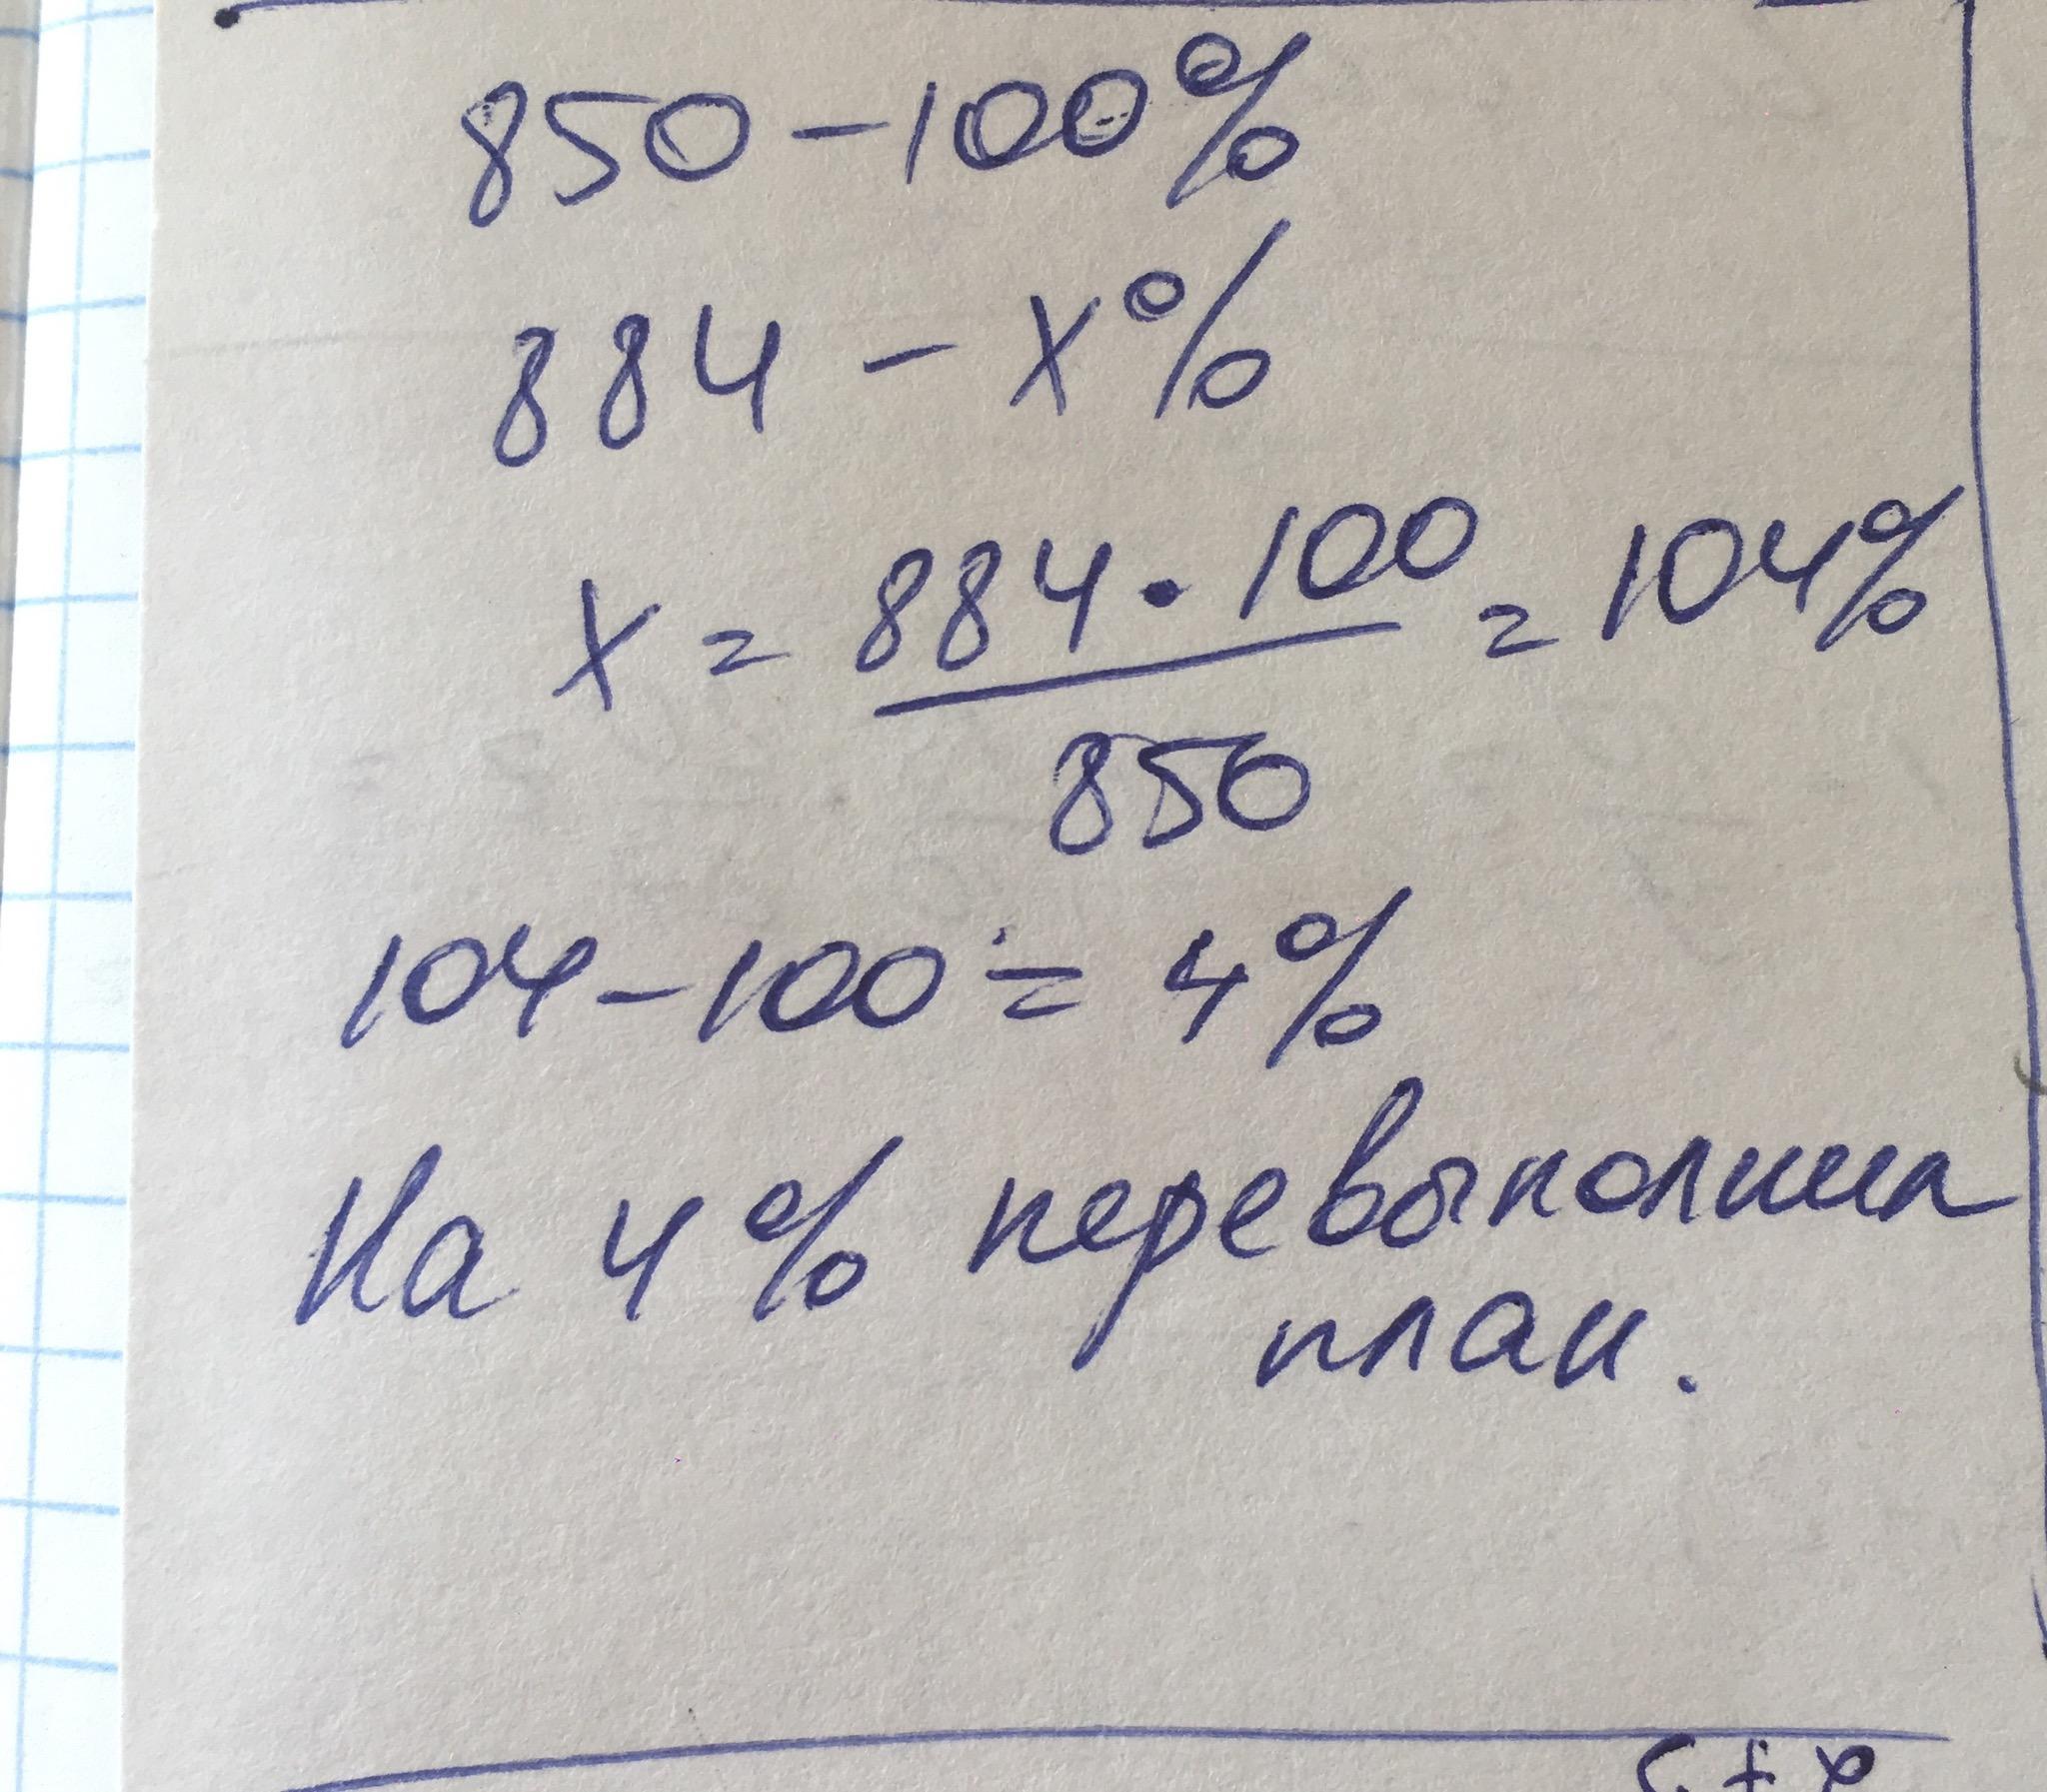 850 - 100%
884 - x%
x = 884 · 100 / 850 = 104%
104 - 100 = 4%
На 4% перевыполнил
план.